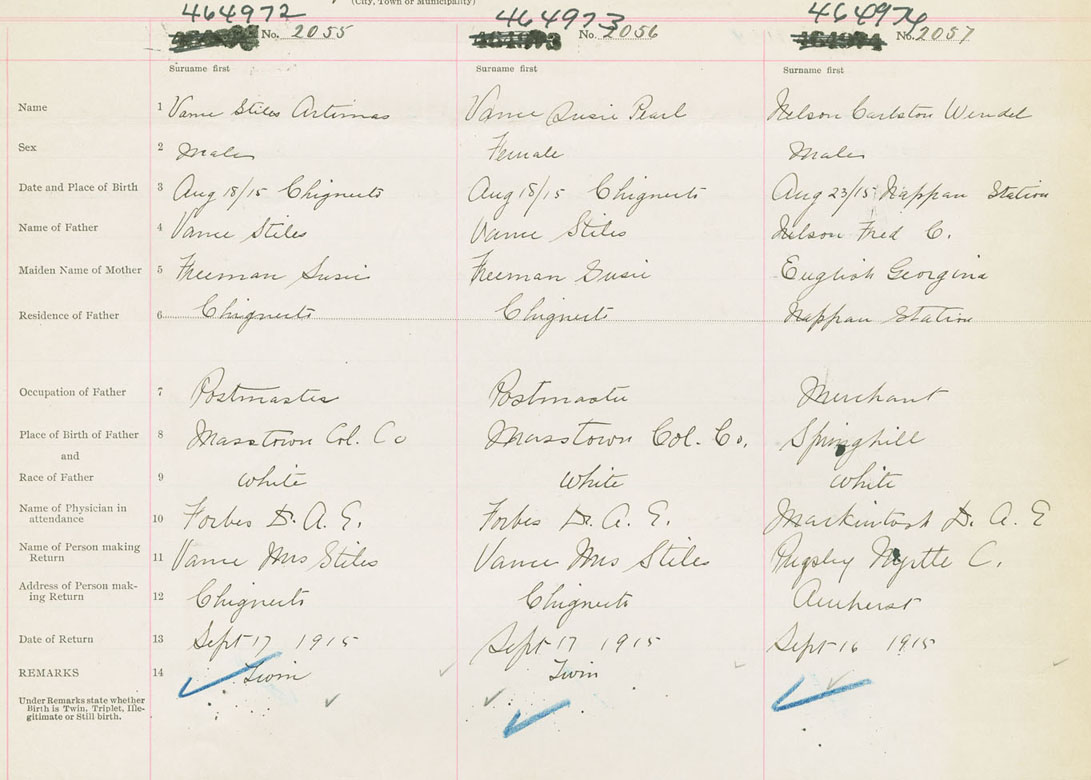 (City, Town or Municipality)
464972 464973 464974
No. 2055 No. 2056 No. 2057
Surname first Surname first Surname first
Name 1 Vance Stiles Artimas Vance Susie Pearl Nelson Carlston Wendel
Sex 2 Male Female Male
Date and Place of Birth 3 Aug 18/15 Chignects Aug 18/15 Chignects Aug 23/15 Nappan Station
Name of Father 4 Vance Stiles Vance Stiles Nelson Fred C.
Maiden Name of Mother 5 Freeman Susie Freeman Susie English Georgina
Residence of Father 6 Chignects Chignects Nappan Station
Occupation of Father 7 Postmaster Postmaster Merchant
Place of Birth of Father 8 Masstown Col. Co Masstown Col. Co. Springhill
and
Race of Father 9 White White White
Name of Physician in
attendance 10 Forbes Dr. A. E. Forbes Dr. A. E. Mackintosh Dr. A. E
Name of Person making
Return 11 Vance Mrs Stiles Vance Mrs Stiles Pugsley Myrtle C.
Address of Person mak-
ing Return 12 Chignects Chignects Amherst
Date of Return 13 Sept 17 1915 Sept 17 1915 Sept 16 1915
REMARKS 14 Twin Twin
Under Remarks state whether
Birth is Twin, Triplet, Ille-
gitimate or Still birth.